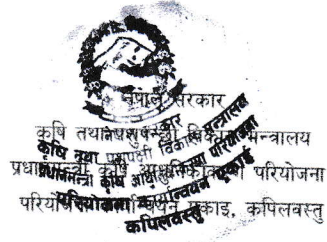 नेपाल सरकार
कृषि तथा पशुपन्छी विकास मन्त्रालय
प्रधानमन्त्री कृषि आधुनिकीकरण परियोजना
परियोजना कार्यान्वयन एकाइ, कपिलवस्तु
कृषि तथा पशुपन्छी विकास मन्त्रालय
प्रधानमन्त्री कृषि आधुनिकीकरण परियोजना
परियोजना कार्यान्वयन एकाई
कपिलवस्तु